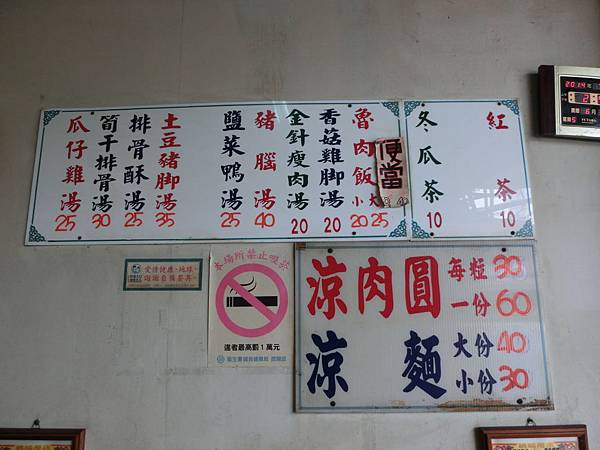 魯肉飯 小20 大25
便當
香菇雞腳湯 20
金針瘦肉湯 20
豬腦湯 40
鹽菜鴨湯 25
土豆豬脚湯 35
排骨酥湯 25
筍干排骨湯 30
瓜仔雞湯 25
紅茶 10
冬瓜茶 10
2014
本場所禁止吸菸
違者最高罰1萬元
愛惜健康、地球,
謝謝自備餐具。
涼肉圓 每粒30
一份60
涼麵 大份40
小份30